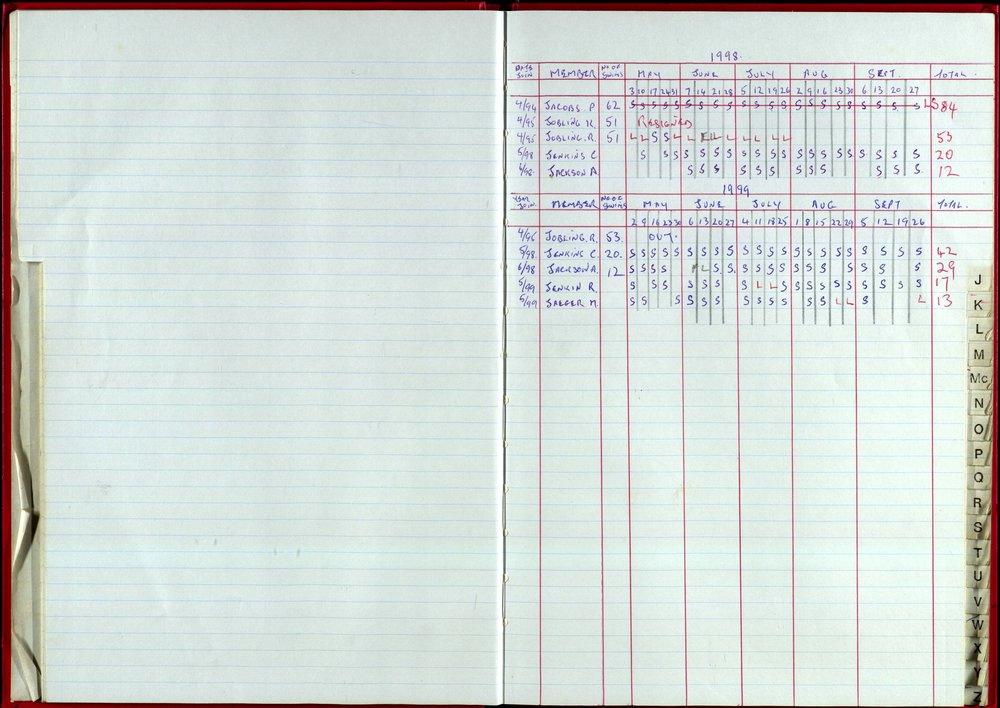 1998.
DATE JOIN MEMBER NO OF SWIMS MAY JUNE JULY AUG SEPT. TOTAL.
3 10 17 24 31 7 14 21 28 5 12 19 26 2 9 16 23 30 6 13 20 27
4/94 JACOBS P 62 S S S S S S S S S S S S S S S S S S S S S S 84
4/95 JOBLING K. 51 RESIGNED
4/95 JOBLING. R. 51 L L S S L L L L L L L L 53
5/98 JENKINS C S S S S S S S S S S S S S S S S S S S S 20
6/98 JACKSON A. S S S S S S S S S S S S 12
1999
YEAR JOIN. MEMBER NO OF SWIMS MAY JUNE JULY AUG SEPT TOTAL.
2 9 16 23 30 6 13 20 27 4 11 18 25 1 8 15 22 29 5 12 19 26
4/95 JOBLING. R. 53. OUT.
5/98 JENKINS C. 20. S S S S S S S S S S S S S S S S S S S S S S 42
6/98 JACKSON A. 12 S S S S L S S S S S S S S S S S S S S 29
5/99 JENKIN R S S S S S S S L L S S S S S S S S S S 17
5/99 JAEGER M. S S S S S S S S S S S S L L S L 13
J
K
L
M
Mc
N
O
P
Q
R
S
T
U
V
W
X
Y
Z